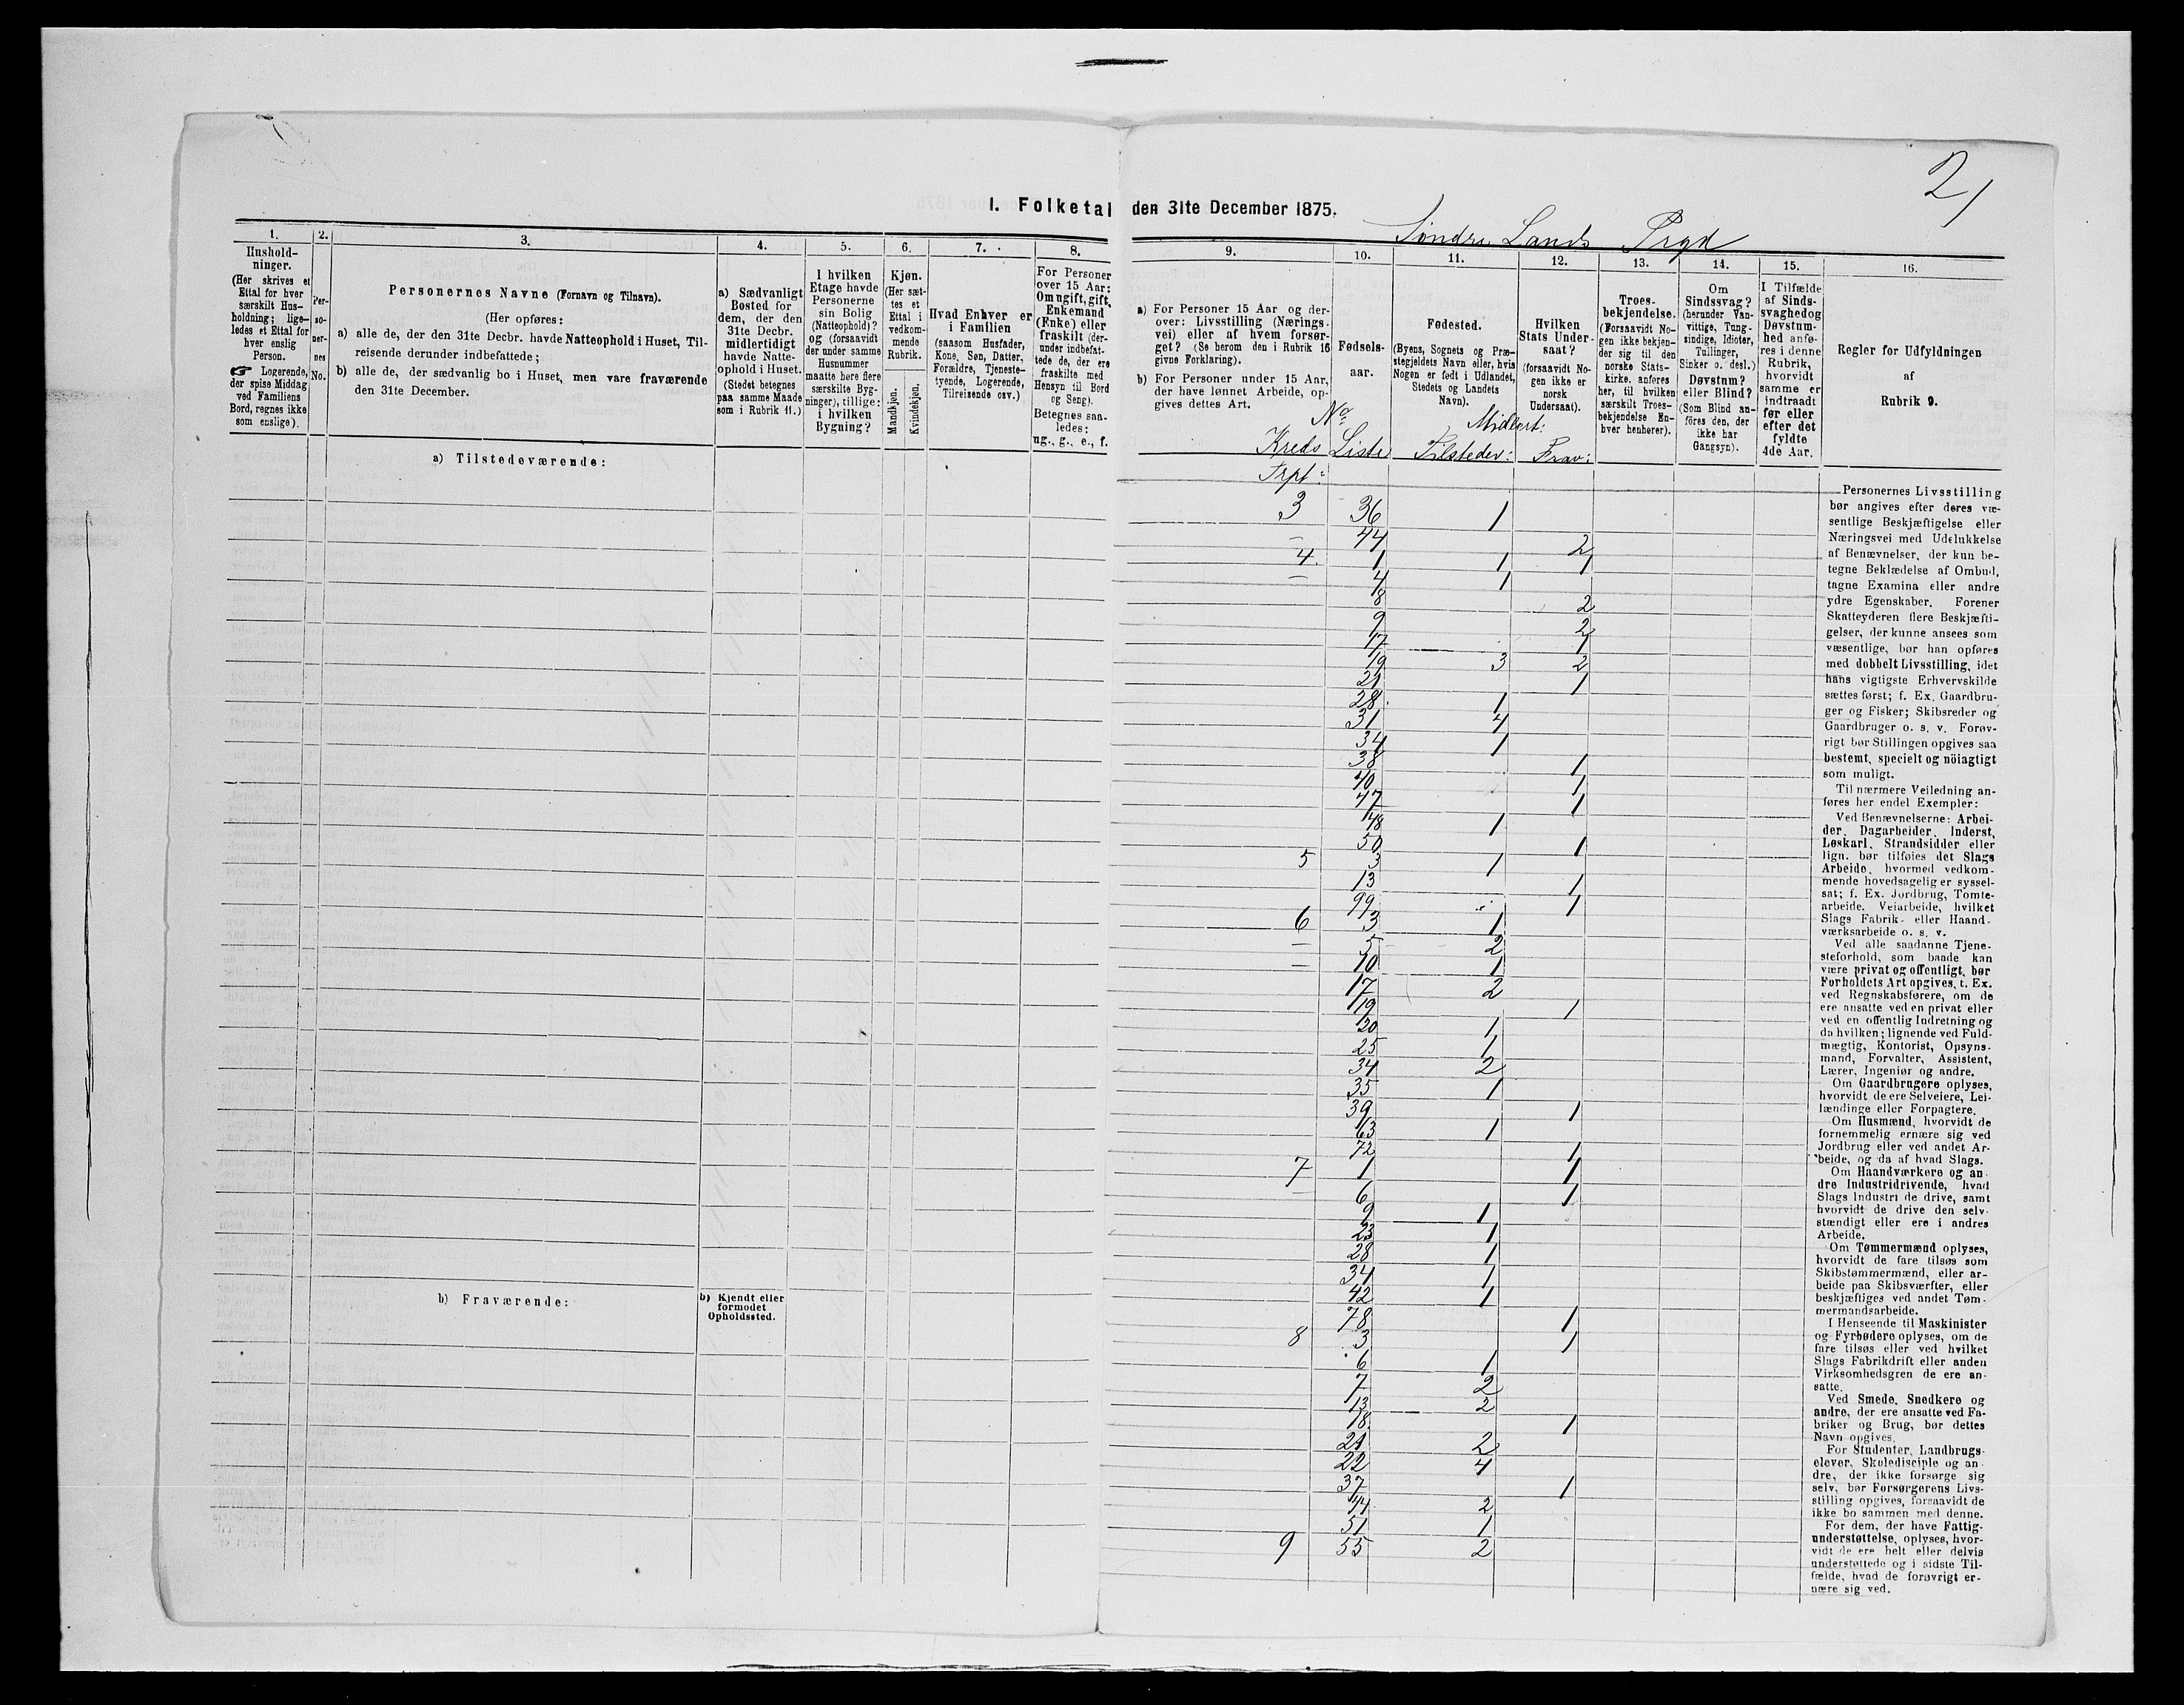 2/
I. Folketal den 31te December 1875.
Søndre Lands Prgd
1.
Hushold-
ninger.
(Her skrives et
Ettal for hver
særskilt Hus-
holdning; lige-
ledes et Ettal for
hver enslig
Person.
☞ Logerende,
der spise Middag
ved Familiens
Bord, regnes ikke
som enslige).
2.
Per-
so-
ner-
nes
No.
3.
Personernes Navne (Fornavn og Tilnavn).
(Her opføres:
a) alle de, der den 31te Decbr. havde Natteophold i Huset, Til-
reisende derunder indbefattede;
b) alle de, der sædvanlig bo i Huset, men vare fraværende
den 31te December.
4.
a) Sædvanligt
Bosted for
dem, der den
31te Decbr.
midlertidigt
havde Natte-
ophold i Huset.
(Stedet betegnes
paa samme Maade
som i Rubrik 11.)
5.
I hvilken
Etage havde
Personerne
sin Bolig
(Natteophold)?
og (forsaavidt
der under samme
Husnummer
maatte høre flere
særskilte Byg-
ninger), tillige:
i hvilken
Bygning?
6.
Kjøn.
(Her sæt-
tes et
Ettal i
vedkom-
mende
Rubrik.
Mandkjøn.
Kvindekjøn.
7.
Hvad Enhver er
i Familien
(saasom Husfader,
Kone, Søn, Datter,
Forældre, Tjeneste-
tyende, Logerende,
Tilreisende osv.)
8.
For Personer
over 15 Aar:
Om ugift, gift,
Enkemand
(Enke) eller
fraskilt (der-
under indbefat-
tede de, der ere
fraskilte med
Hensyn til Bord
og Seng).
Betegnes saa-
ledes:
ug., g., e., f.
9.
a) For Personer 15 Aar og der-
over: Livsstilling (Nærings-
vei) eller af hvem forsør-
get? (Se herom den i Rubrik 16
givne Forklaring).
b) For Personer under 15 Aar,
der have lønnet Arbeide, op-
gives dettes Art.
10.
Fødsels-
aar.
11.
Fødested.
(Byens, Sognets og Præ-
stegjeldets Navn eller, hvis
Nogen er født i Udlandet,
Stedets og Landets
Navn).
12.
Hvilken
Stats Under-
saat?
(forsaavidt No-
gen ikke er
norsk
Undersaat).
13.
Troes-
bekjendelse.
(Forsaavidt No-
gen ikke bekjen-
der sig til den
norske Stats-
kirke, anføres
her, til hvilken
særskilt Troes-
bekjendelse En-
hver henhører).
14.
Om
Sindssvag?
(herunder Van-
vittige, Tung-
sindige, Idioter,
Tullinger,
Sinker o. desl.)
Døvstum?
eller Blind?
(Som Blind an-
føres den, der
ikke har
Gangsyn).
15.
I Tilfælde
af Sinds-
svaghed og
Døvstum-
hed anfø-
res i denne
Rubrik,
hvorvidt
samme er
indtraadt
før eller
efter det
fyldte
4de Aar.
16.
Regler for Udfyldningen
af
Rubrik 9.
No Midlert:
Kreds Liste Tilstedev: Frav:
Trpt:
a) Tilstedeværende:
3 36 1
— 44 2
4. 1 1 1
— 4 1
8 2
9 2
17 1
19 3 2
21 1
28 1
31 4
34 1
38 1
40 1
47 1
48 1
50 1
5 3 1
13 1
99 1
6 3 1
— 5 2
— 10 1
17 2
19 1
20 1
25 1
34 2
35 1
39 1
63 1
72 1
7 1 1
— 6 1
9 1
23 1
28 1
34 1
42 1
78 1
8 3 1
6 1
7 2
13 2
18 1
21 2
22 4
37 1
44 2
51 1
9 55 2
b) Fraværende:
b) Kjendt eller
formodet
Opholdssted.
Personernes Livsstilling
bør angives efter deres væ-
sentlige Beskjæftigelse eller
Næringsvei med Udelukkelse
af Benævnelser, der kun be-
tegne Beklædelse af Ombud,
tagne Examina eller andre
ydre Egenskaber. Forener
Skatteyderen flere Beskjæfti-
gelser, der kunne ansees som
væsentlige, bør han opføres
med dobbelt Livsstilling, idet
hans vigtigste Erhvervskilde
sættes først; f. Ex. Gaardbru-
ger og Fisker; Skibsreder og
Gaardbruger o. s. v. Forøv-
rigt bør Stillingen opgives saa
bestemt, specielt og nöiagtigt
som muligt.
Til nærmere Veiledning an-
føres her endel Exempler:
Ved Benævnelserne: Arbei-
der, Dagarbeider, Inderst,
Løskarl, Strandsidder eller
lign. bør tilføies det Slags
Arbeide, hvormed vedkom-
mende hovedsagelig er syssel-
sat; f. Ex. Jordbrug, Tomte-
arbeide, Veiarbeide, hvilket
Slags Fabrik- eller Haand-
værksarbeide o. s. v.
Ved alle saadanne Tjene-
steforhold, som baade kan
være privat og offentligt, bør
Forholdets Art opgives, t. Ex.
ved Regnskabsførere, om de
ere ansatte ved en privat eller
ved en offentlig Indretning og
da hvilken; lignende ved Fuld-
mægtig, Kontorist, Opsyns-
mand, Forvalter, Assistent,
Lærer, Ingeniør og andre.
Om Gaardbrugere oplyses,
hvorvidt de ere Selveiere, Lei-
lændinge eller Forpagtere.
Om Husmænd, hvorvidt de
fornemmelig ernære sig ved
Jordbrug eller ved andet Ar-
beide, og da af hvad Slags.
Om Haandværkere og an-
dre Industridrivende, hvad
Slags Industri de drive, samt
hvorvidt de drive den selv-
stændigt eller ere i andres
Arbeide.
Om Tømmermænd oplyses,
hvorvidt de fare tilsøs som
Skibstømmermænd, eller ar-
beide paa Skibsværfter, eller
beskjæftiges ved andet Tøm-
mermandsarbeide.
I Henseende til Maskinister
og Fyrbødere oplyses, om de
fare tilsøs eller ved hvilket
Slags Fabrikdrift eller anden
Virksomhedsgren de ere an-
satte.
Ved Smede, Snedkere og
andre, der ere ansatte ved Fa-
briker og Brug, bør dettes
Navn opgives.
For Studenter, Landbrugs-
elever, Skoledisciple og an-
dre, der ikke forsørge sig
selv, bør Forsørgerens Livs-
stilling opgives, forsaavidt de
ikke bo sammen med denne.
For dem, der have Fattig-
understøttelse, oplyses, hvor-
vidt de ere helt eller delvis
understøttede og i sidste Til-
fælde, hvad de forøvrigt er-
nære sig ved.